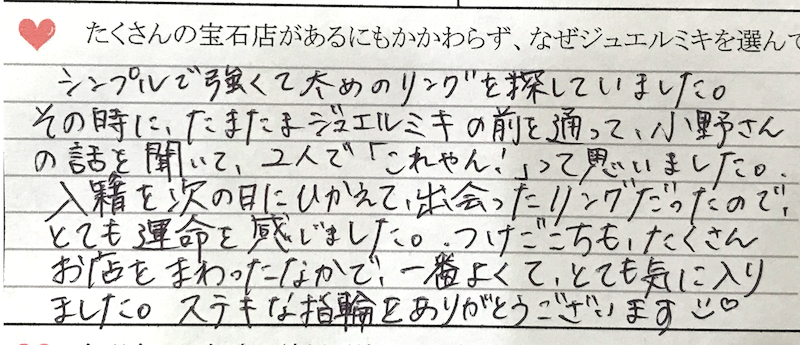 たくさんの宝石店があるにもかかわらず、なぜジュエルミキを選んで
シンプルで強くて太めのリングを探していました。
その時に、たまたまジュエルミキの前を通って、小野さん
の話を聞いて、2人で「これやん!」って思いました。
入籍を次の日にひかえて、出会ったリングだったので、
とても運命を感じました。つけごこちも、たくさん
お店をまわったなかで、一番よくて、とても気に入り
ました。ステキな指輪をありがとうございます